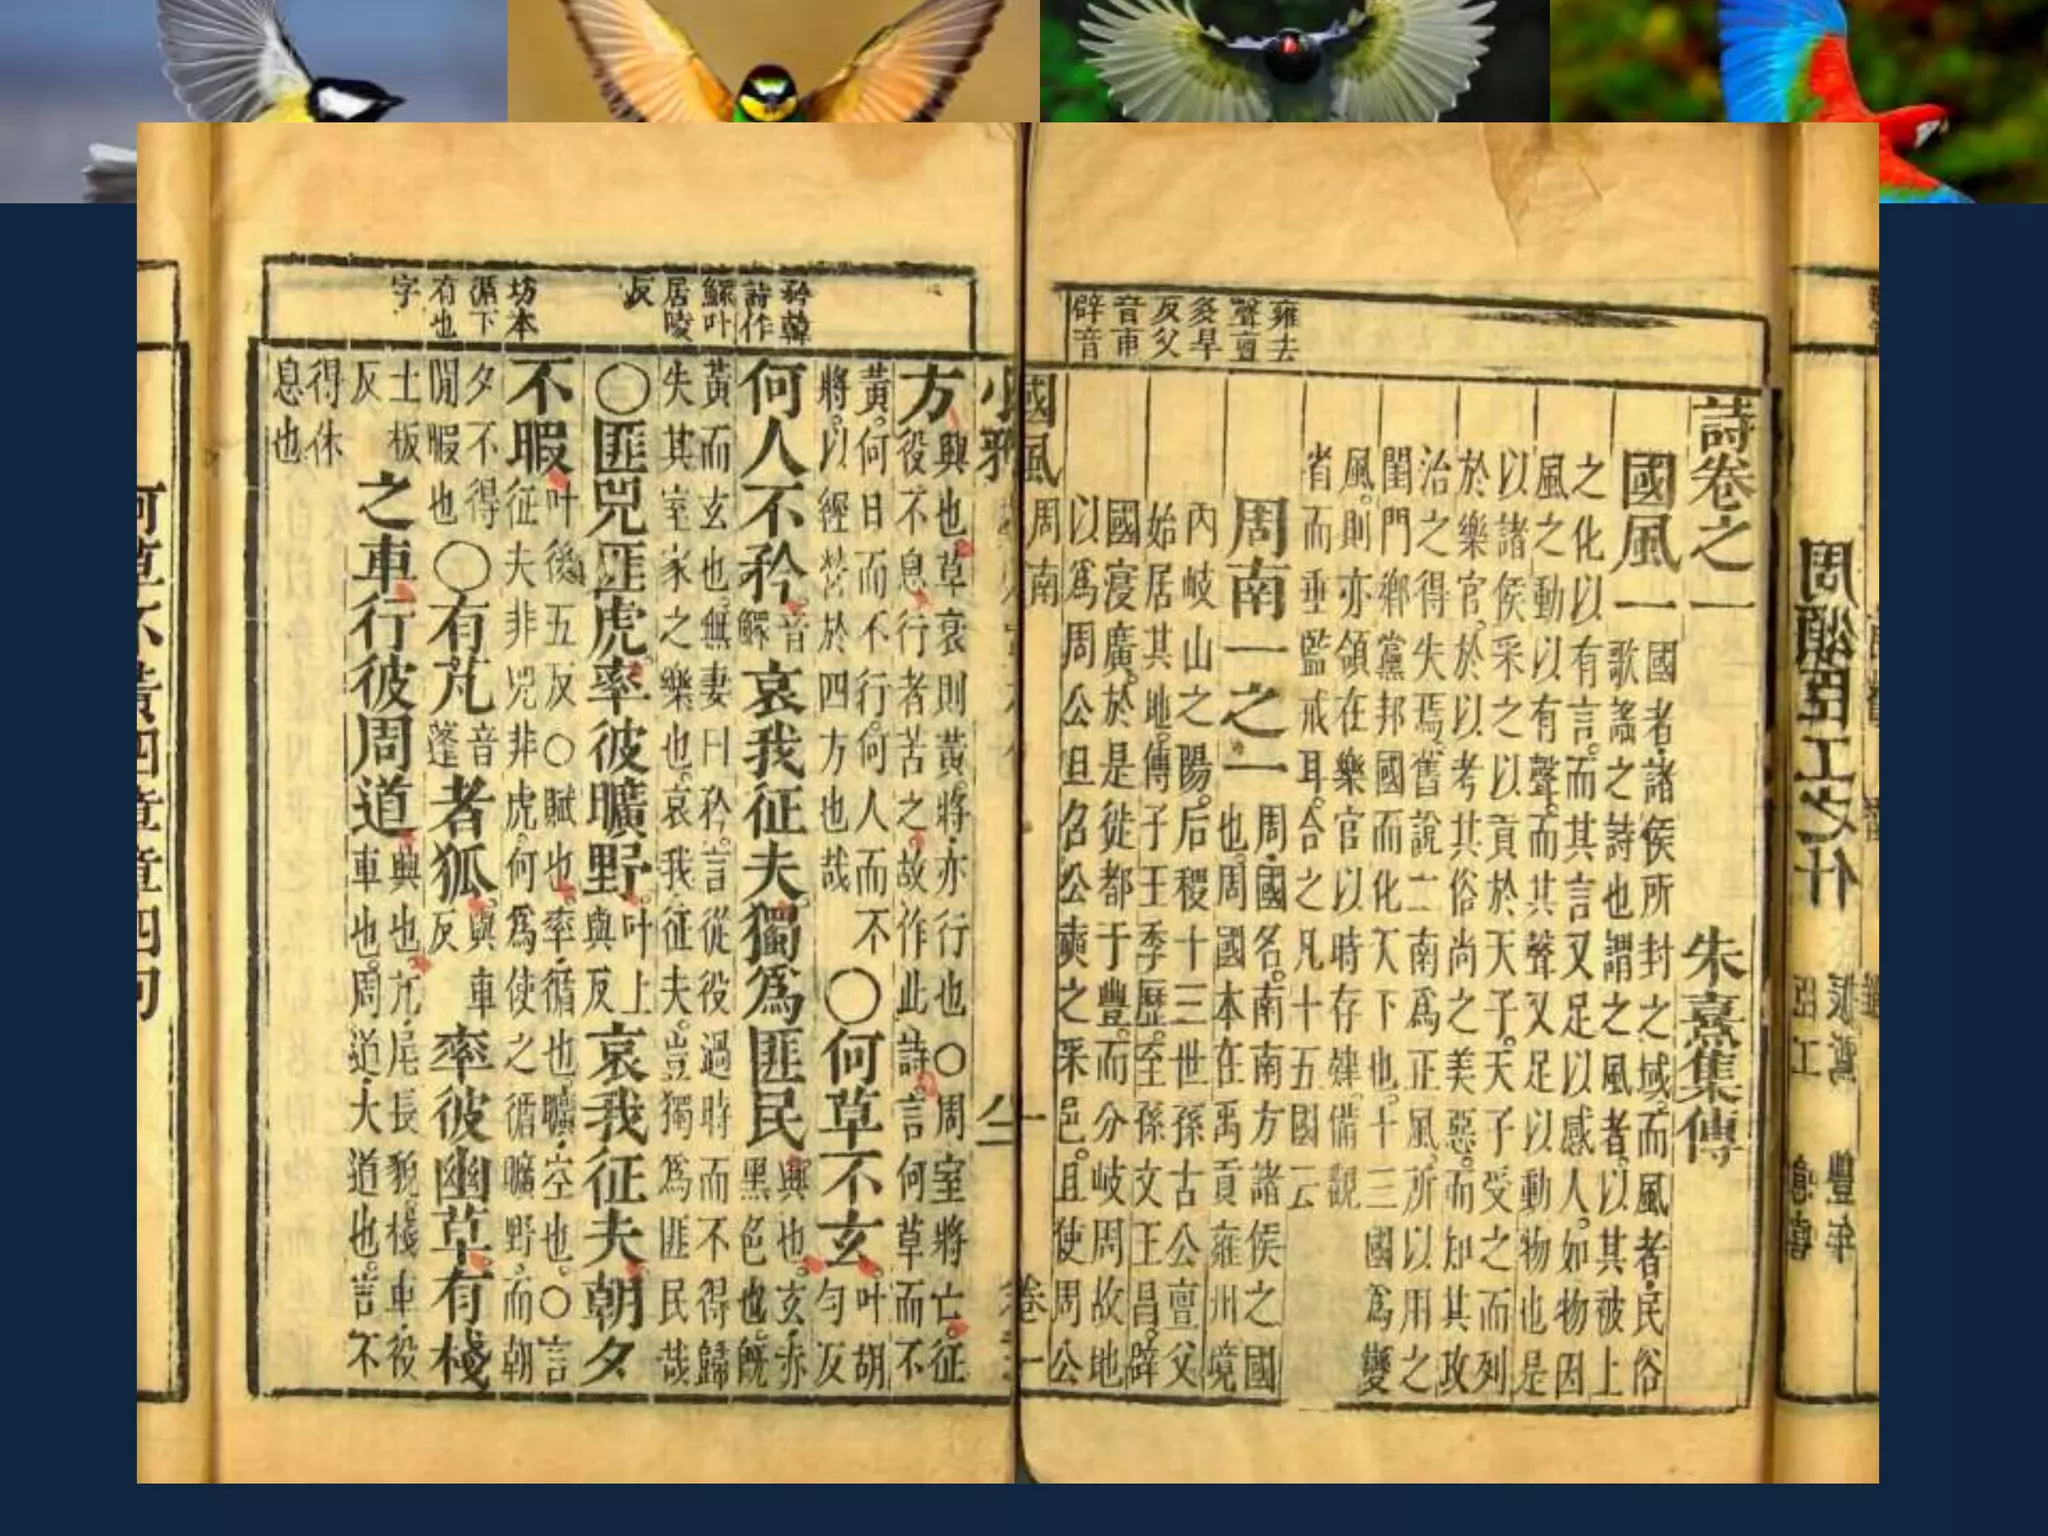 周頌臣工之什
振鷺 豐年
臣工
雍去
聲亶
多旱
反父
音甫
辟音
詩卷之一 朱熹集傳
國風一
國者諸侯所封之域。而風者民俗
歌謠之詩也謂之風者。以其被上
之化以有言。而其言又足以感人。如物因
風之動以有聲。而其聲又足以動物也是
以諸侯采之以貢於天子。天子受之而列
於樂官。於以考其俗尚之美惡。而知其政
治之得失焉。舊說二南爲正風。所以用之
閨門鄉黨邦國而化天下也。十三國爲變
風。則亦領在樂官以時存肄備觀
省而垂監戒耳。合之凡十五國云
周南一之一
周國名。南南方諸侯之國
也。周國本在禹貢雍州境
內岐山之陽。后稷十三世孫古公亶父
始居其地。傳子王季歷。至孫文王昌。辟
國寖廣。於是徙都于豐。而分岐周故地
以爲周公旦召公奭之采邑。且使周公
國風 周南
小雅
矜韓
詩作
鰥叶
居陵
反
坊本
循下
有也
字
方
興也草衰則黃。將亦行也○周室將亡。征
役不息行者苦之。故作此詩。言何草而不
黃。何日而不行。何人而不
將。以經營於四方也哉
○何草不玄
叶胡
勻反
何人不矜
音
鰥
哀我征夫獨爲匪民
興也。玄赤
黑色也。既
黃而玄也。無妻曰矜。言從役過時而不得歸
失其室家之樂也。哀我征夫。豈獨爲匪民哉
○匪兕匪虎率彼曠野
叶上
與反
哀我征夫朝夕
不暇
叶後五反○賦也率循也曠空也。○言
征夫非兕非虎。何爲使之循曠野。而朝
夕不得
閒暇也
○有芃
音
蓬
者狐
與車
反
率彼幽草有棧
士板
反
之車行彼周道
興也。芃尾長貌。棧車。役
車也。周道。大道也。言不
得休
息也
何草不黃四章章四句